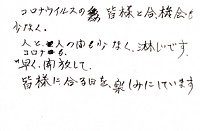 コロナウイルスの為 皆様と会う機会も
少なく。
人と人の間も少なく、淋しです。
コロナも
早く開放して、
皆様に会る日を楽しみにしています